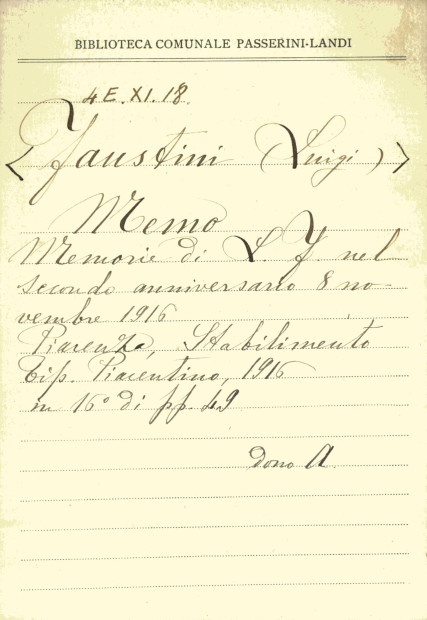 BIBLIOTECA COMUNALE PASSERINI-LANDI
4E.XI.18.
< Faustini (Luigi) >
Memo
Memorie di L. F nel
secondo anniversario 8 no-
vembre 1916
Piacenza, Stabilimento
Tip. Piacentino, 1916
in 16° di pp. 49
dono A.